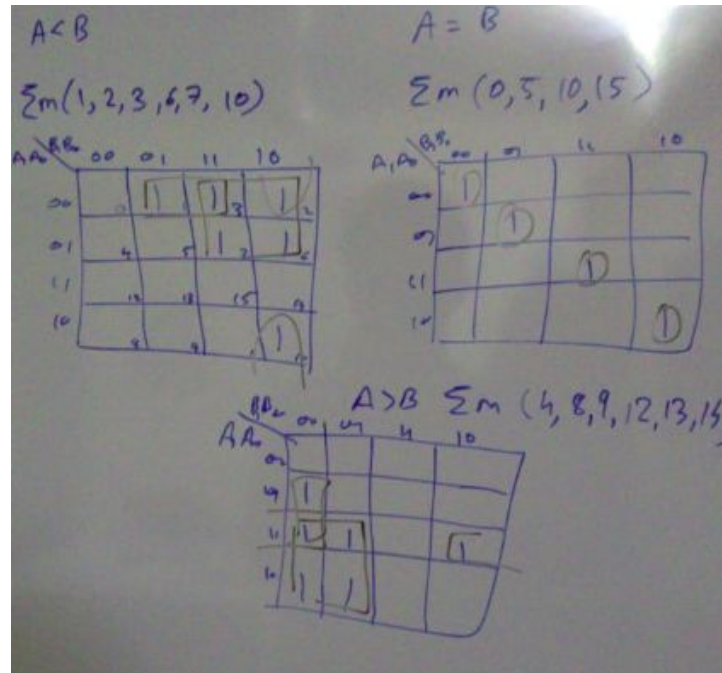 A<B
A = B
Σm(1,2,3,6,7,10)
Σm(0,5,10,15)
A₁A₀ B₁B₀ 00 01 11 10
00 1 1 3 1 2
01 4 5 1 7 1 6
11 12 13 15
10 8 9 1
A₁A₀ B₁B₀ 00 01 11 10
00 1
01 1
11 1
10 1
A>B Σm (4,8,9,12,13,14
B₁B₀
A₁A₀ 00 01 11 10
00
01 1
11 1 1 1
10 1 1